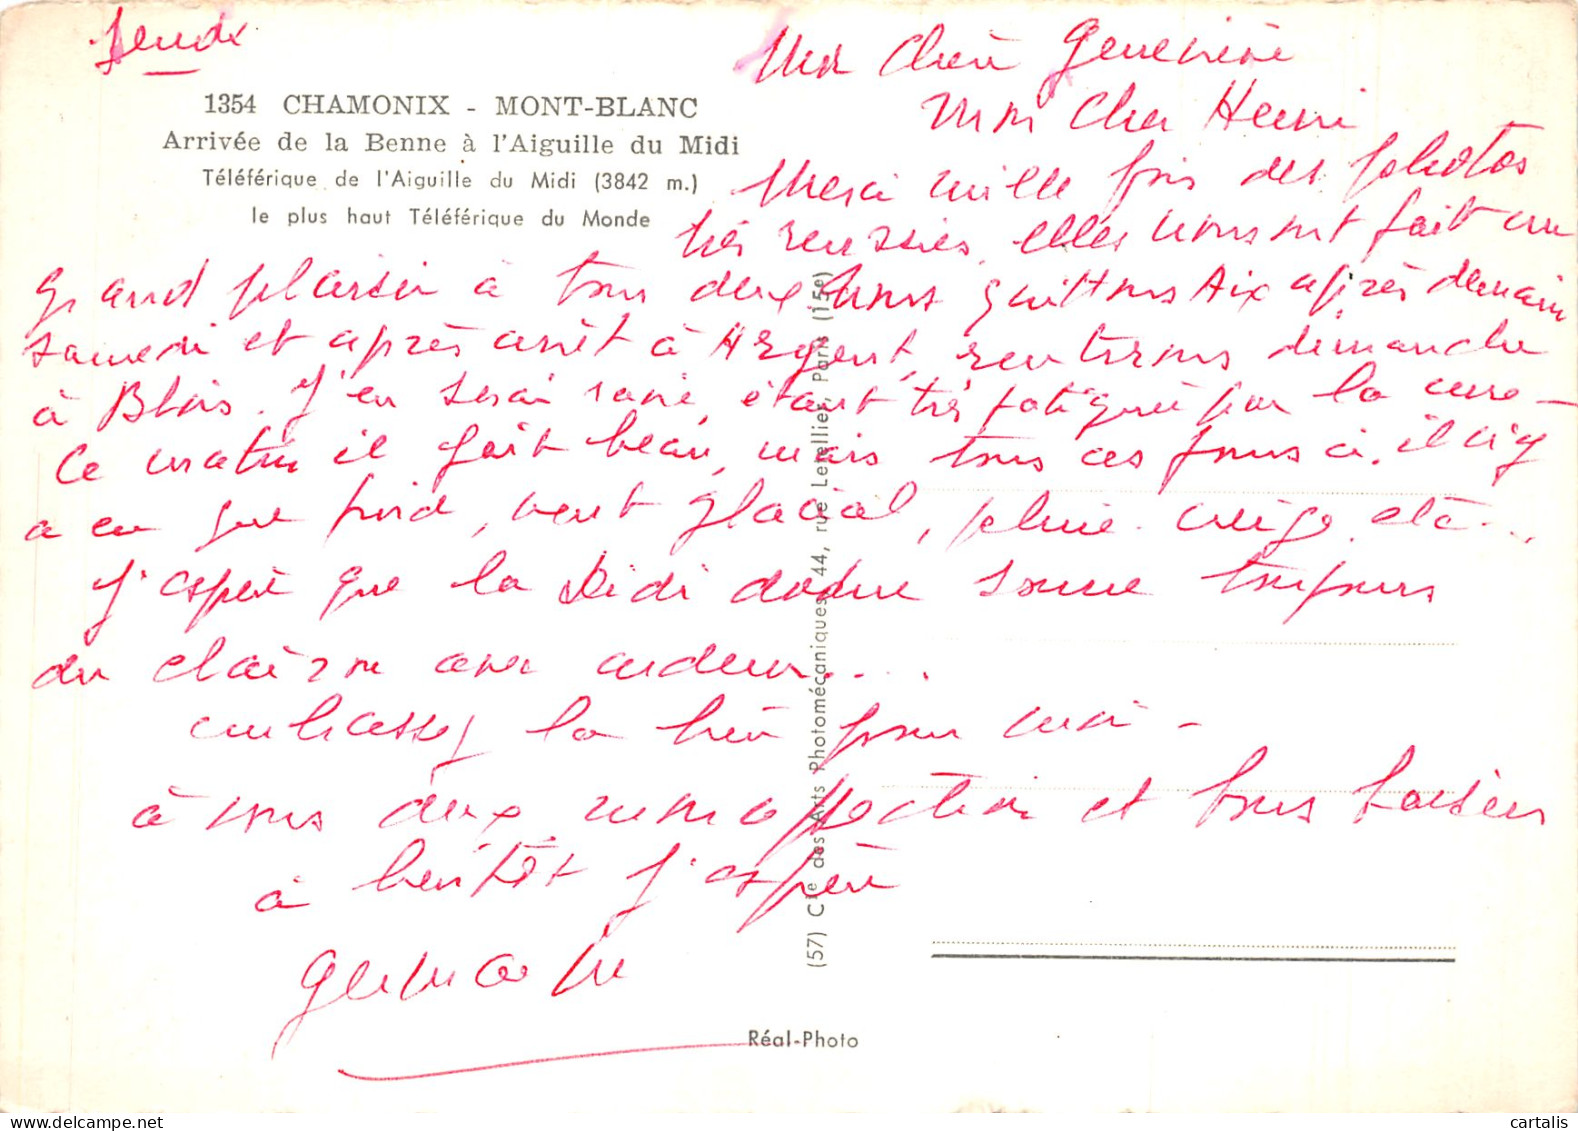 Jeudi
1354 CHAMONIX - MONT-BLANC
Arrivée de la Benne à l'Aiguille du Midi
Téléférique de l'Aiguille du Midi (3842 m.)
le plus haut Téléférique du Monde
Ma Chère Geneviève
Mon Cher Henri
Merci mille fois des photos
très réussies, elles nous ont fait un
grand plaisir à tous deux Nous quittons Aix après demain
samedi et après arrêt à Argent, rentrerons dimanche
à Blois. J'en serai ravie, étant très fatiguée par la cure -
Ce matin il fait beau, mais tous ces jours ci, il n'y
a eu que froid, vent glacial, pluie. neige. etc...
J'espère que la Didi dodue sonne toujours
du clairon avec ardeur....
embrassez la bien pour moi -
à vous deux mon affection et bons baisers
à bientôt j'espère
(57) Cie des Arts Photomécaniques, 44, rue Letellier, Paris (15e)
Réal-Photo
cartalis